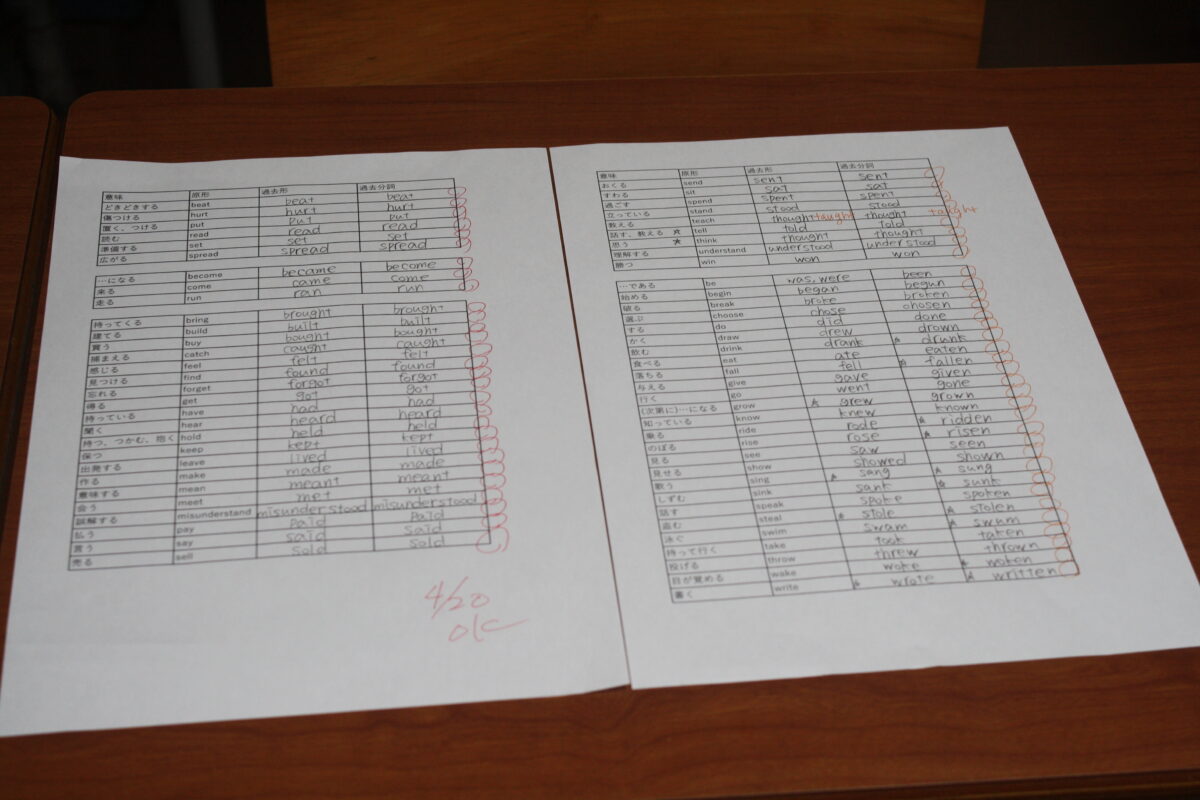 意味 原形 過去形 過去分詞
どきどきする beat beat beat
傷つける hurt hurt hurt
置く、つける put put put
読む read read read
準備する set set set
広がる spread spread spread
…になる become became become
来る come came come
走る run ran run
持ってくる bring brought brought
建てる build built built
買う buy bought bought
捕まえる catch caught caught
感じる feel felt felt
見つける find found found
忘れる forget forgot forgot
得る get got got
持っている have had had
聞く hear heard heard
持つ、つかむ、抱く hold held held
保つ keep kept kept
出発する leave lived lived
作る make made made
意味する mean meant meant
会う meet met met
誤解する misunderstand misunderstood misunderstood
払う pay paid paid
言う say said said
売る sell sold sold
4/20
OK
意味 原形 過去形 過去分詞
おくる send sent sent
すわる sit sat sat
過ごす spend spent spent
立っている stand stood stood
教える teach thought taught thought taught
話す、教える ☆ tell told told
思う ☆ think thought thought
理解する understand understood understood
勝つ win won won
…である be was, were been
始める begin began begun
破る break broke broken
選ぶ choose chose chosen
する do did done
かく draw drew drown
飲む drink drank ☆ drunk
食べる eat ate eaten
落ちる fall fell ☆ fallen
与える give gave given
行く go went gone
(次第に)…になる grow ☆ grew grown
知っている know knew known
乗る ride rode ☆ ridden
のぼる rise rose ☆ risen
見る see saw seen
見せる show showed shown
歌う sing ☆ sang ☆ sung
しずむ sink sank ☆ sunk
話す speak spoke spoken
盗む steal ☆ stole ☆ stolen
泳ぐ swim swam ☆ swum
持って行く take took taken
投げる throw threw thrown
目が覚める wake woke ☆ woken
書く write ☆ wrote ☆ written